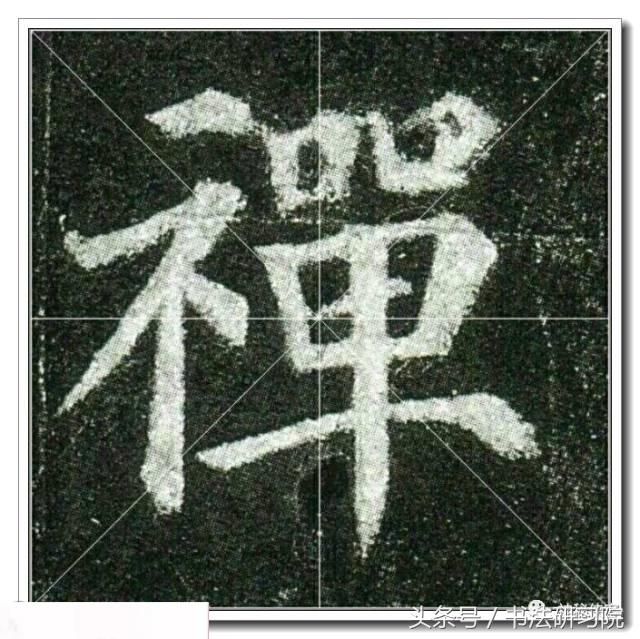 禪
头条号 / 书法研习院